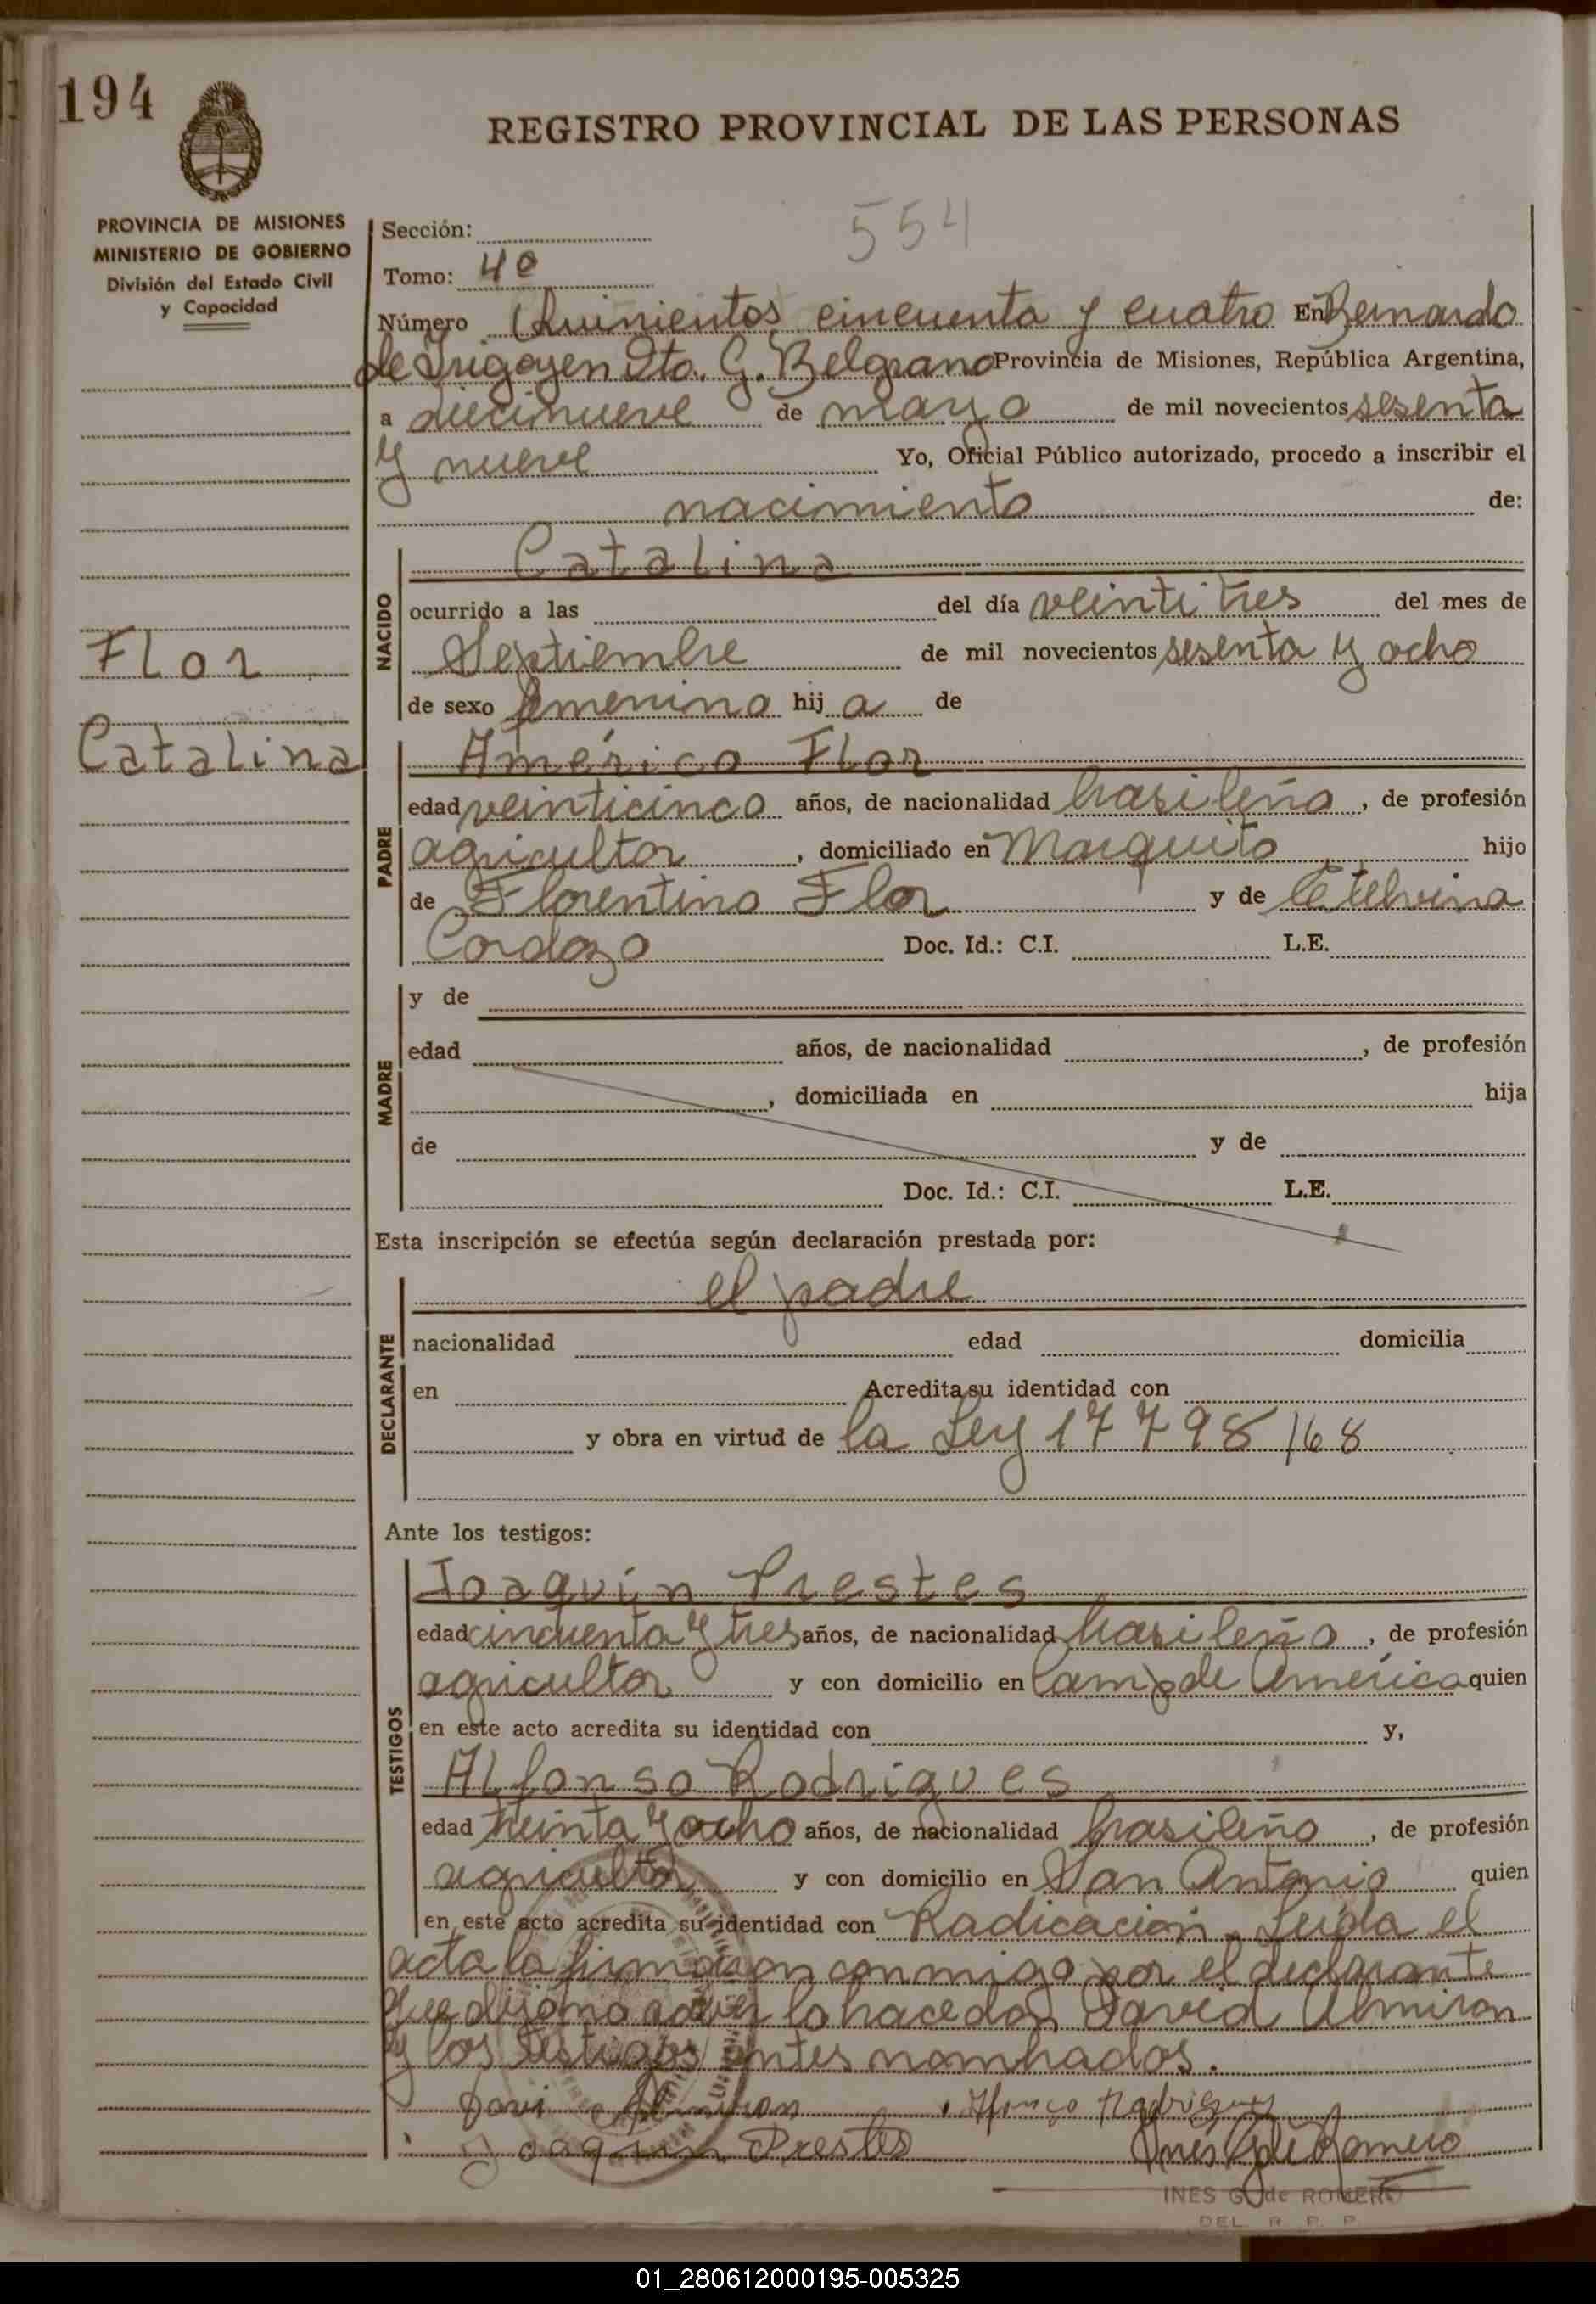 194
REGISTRO PROVINCIAL DE LAS PERSONAS
PROVINCIA DE MISIONES
MINISTERIO DE GOBIERNO
División del Estado Civil
y Capacidad
554
Sección:
Tomo: 4º
Número Quinientos cincuenta y cuatro En Bernardo
de Irigoyen Dto. G. Belgrano Provincia de Misiones, República Argentina,
a diecinueve de mayo de mil novecientos sesenta
y nueve Yo, Oficial Público autorizado, procedo a inscribir el
nacimiento de:
Flor
Catalina
NACIDO
Catalina
ocurrido a las del día veinti tres del mes de
Septiembre de mil novecientos sesenta y ocho
de sexo femenino hij a de
PADRE
Américo Flor
edad veinticinco años, de nacionalidad brasileño, de profesión
agricultor, domiciliado en Marquito hijo
de Florentino Flor y de Etelvina
Cordozo Doc. Id.: C.I. L.E.
MADRE
y de
edad años, de nacionalidad , de profesión
, domiciliada en hija
de y de
Doc. Id.: C.I. L.E.
Esta inscripción se efectúa según declaración prestada por:
DECLARANTE
el padre
nacionalidad edad domicilia
en Acredita su identidad con
y obra en virtud de la Ley 17798/68
Ante los testigos:
TESTIGOS
Joaquín Prestes
edad cincuenta y tres años, de nacionalidad brasileño, de profesión
agricultor y con domicilio en Camp de América quien
en este acto acredita su identidad con y,
Alfonso Rodrigues
edad treinta y ocho años, de nacionalidad brasileño, de profesión
agricultor y con domicilio en San Antonio quien
en este acto acredita su identidad con Radicación. Leída el
acta la firmaron conmigo por el declarante
que dijo no saber lo hace don David Almiron
y los testigos antes nombrados.
Davi Almiron Afonço Rodrigues
Joaquin Prestes Ines G de Romero
INES G. de ROMERO
DEL. R. P. P.
01_280612000195-005325